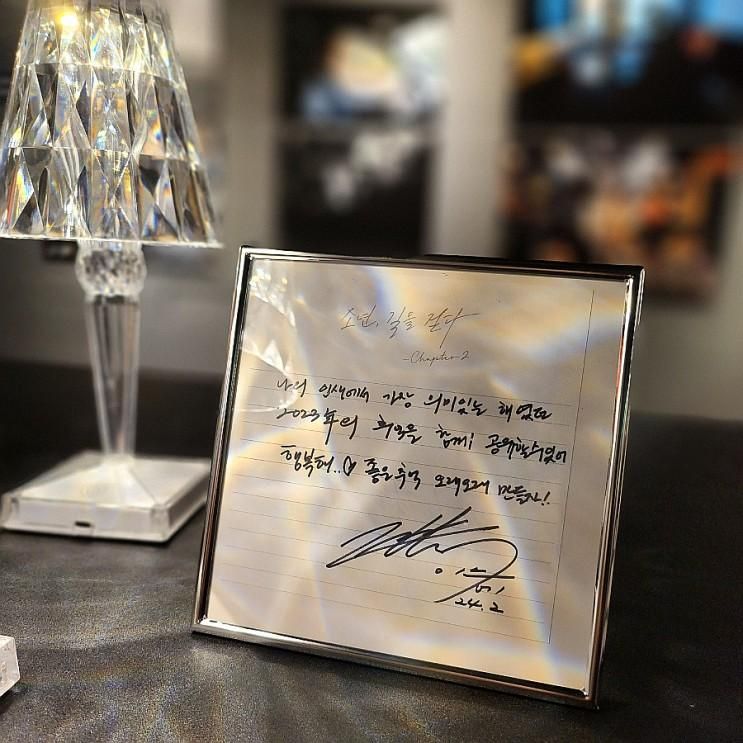 소년, 길을 걷다
-Chapter 2
나의 인생에서 가장 의미있는 해였던
2023年의 추억을 함께 공유할수있어
행복해..♡ 좋은추억 오래오래 만들자!
이승기
24.2